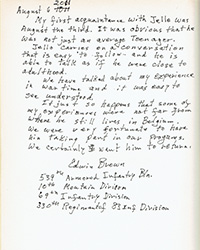 2011
August 6 1011
My first acquaintance with Jelle was
August the third. It was obvious that he
was not just an average Teenager.
Jelle carries on a conversation
that is easy to follow and he is
able to talk as if he were close to
adulthood.
We have talked about my experience
in war time and it was easy to
see understood.
It just so happens that some of
my experiences were not far from
where he still lives in Belgium.
We were very fortunate to have
him taking part in our programs.
We certainly want him to return.
Edwin Brown
539th Armored Infantry Bn.
10th Mountain Division
69th Infantry Division
330th Regiment of 83 Inf Division